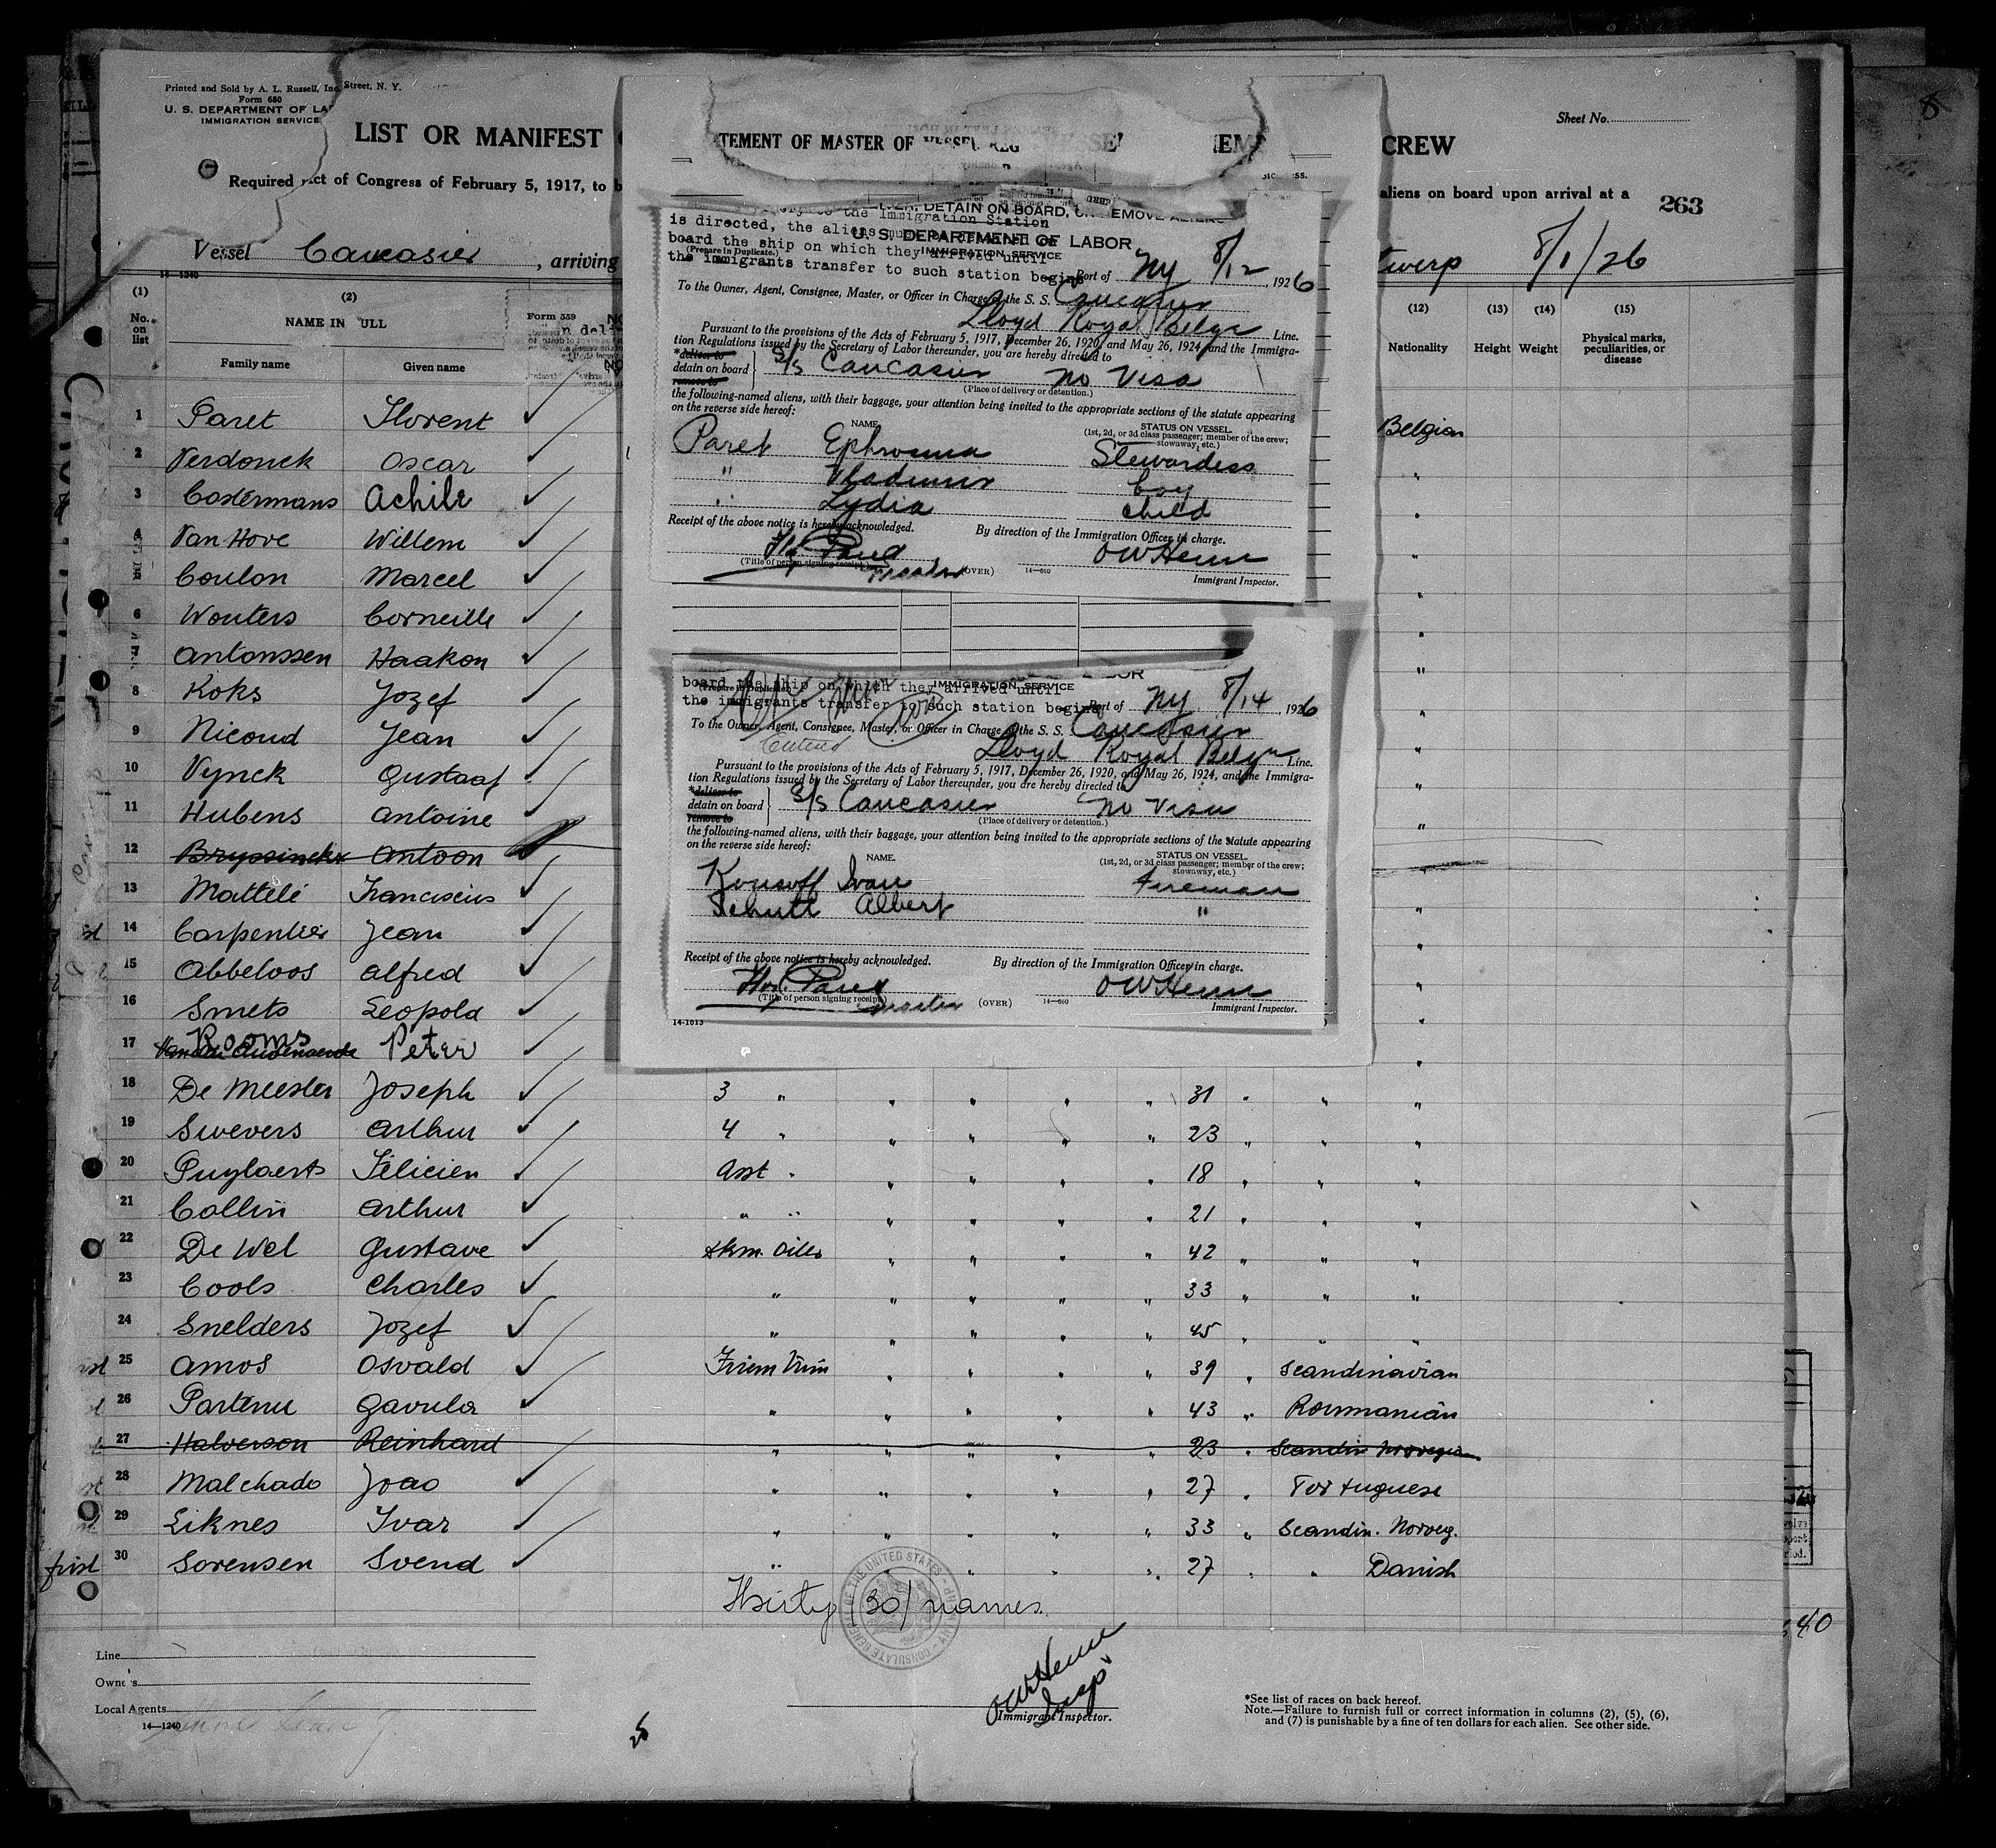 Printed and Sold by A. L. Russell, Inc. Street, N. Y.
Form 680
U. S. DEPARTMENT OF LA
IMMIGRATION SERVICE
Sheet No.
LIST OR MANIFEST
CREW
Required Act of Congress of February 5, 1917, to b
aliens on board upon arrival at a
263
Vessel Caucasier, arriving
twerp 8/1/26
14—1240
(1) No. on list
(2) NAME IN ULL
Family name Given name
Form 559
(12) Nationality
(13) Height
(14) Weight
(15) Physical marks, peculiarities, or disease
TEMENT OF MASTER OF VESSEL REG
DETAIN ON BOARD, OR REMOVE ALIENS
to the Immigration Station
is directed, the aliens
U. S. DEPARTMENT OF LABOR
board the ship on which they arrived until
IMMIGRATION SERVICE
(Prepare in Duplicate.)
the immigrants transfer to such station begins
Port of NY 8/12, 1926
To the Owner, Agent, Consignee, Master, or Officer in Charge of the S. S. Caucasier
Lloyd Royal Belge Line.
Pursuant to the provisions of the Acts of February 5, 1917, December 26, 1920, and May 26, 1924, and the Immigra-
tion Regulations issued by the Secretary of Labor thereunder, you are hereby directed to
*deliver to
detain on board } S/S Caucasier no visa
remove to
(Place of delivery or detention.)
the following-named aliens, with their baggage, your attention being invited to the appropriate sections of the statute appearing
on the reverse side hereof:
NAME. STATUS ON VESSEL
(1st, 2d, or 3d class passenger; member of the crew; stowaway, etc.)
Paret Ephrosina Stewardess
" Vladimir boy
" Lydia child
Receipt of the above notice is hereby acknowledged. By direction of the Immigration Officer in charge.
Flor Paret OWHenn
(Title of person signing receipt.) master (OVER) 14—660 Immigrant Inspector.
board the ship on which they arrived until
(Prepare in Duplicate.) IMMIGRATION SERVICE
the immigrants transfer to such station begins
Port of NY 8/14, 1926
To the Owner, Agent, Consignee, Master, or Officer in Charge of the S. S. Caucasier
Lloyd Royal Belge Line.
Pursuant to the provisions of the Acts of February 5, 1917, December 26, 1920, and May 26, 1924, and the Immigra-
tion Regulations issued by the Secretary of Labor thereunder, you are hereby directed to
*deliver to
detain on board } S/S Caucasier no visa
remove to
(Place of delivery or detention.)
the following-named aliens, with their baggage, your attention being invited to the appropriate sections of the statute appearing
on the reverse side hereof:
NAME. STATUS ON VESSEL
(1st, 2d, or 3d class passenger; member of the crew; stowaway, etc.)
Ivan Fireman
Schutt Albert "
Receipt of the above notice is hereby acknowledged. By direction of the Immigration Officer in charge.
Flor. Paret OWHenn
(Title of person signing receipt.) master (OVER) 14—660 Immigrant Inspector.
14-1613
1 Paret Florent Belgian
2 Verdonck Oscar "
3 Costermans Achile "
4 Van Hove Willem "
5 Coulon Marcel "
6 Wouters Corneille "
7 Antonssen Haakon "
8 Koks Jozef "
9 Nicoud Jean "
10 Vynck Gustaaf "
11 Hubens Antoine "
12 Bryssinckx Antoon
13 Mattelé Franciscus "
14 Carpentier Jean "
15 Abbeloos Alfred "
16 Smets Leopold "
17 Rooms Peter "
18 De Meester Joseph 3 " " " " " 31 " " "
19 Swevers Arthur 4 " " " " " 23 " " "
20 Puylaert Felicien Asst " " " " " 18 " " "
21 Collin Arthur " " " " " " 21 " " "
22 De Wel Gustave dkm. Oiler " " " " 42 " " "
23 Cools Charles " " " " " 33 " " "
24 Snelders Jozef " " " " " 45 " " "
25 Amos Osvald Firem Trim " " " " 39 " Scandinavian
26 Partenu Gavula " " " " " 43 " Roumanian
27 Halverson Reinhard " " " " " 23 " Scandin Norvegia
28 Malchado Joao " " " " " 27 " Portuguese
29 Eiknes Ivar " " " " " 33 " Scandin. Norveg.
first 30 Sorensen Svend " " " " 27 " " Danish
Thirty (30) names
CONSULATE GENERAL OF THE UNITED STATES
Line
Owners
Local Agents
14—1240
OWHenn
Insp
Immigrant Inspector.
*See list of races on back hereof.
Note.—Failure to furnish full or correct information in columns (2), (5), (6),
and (7) is punishable by a fine of ten dollars for each alien. See other side.
40